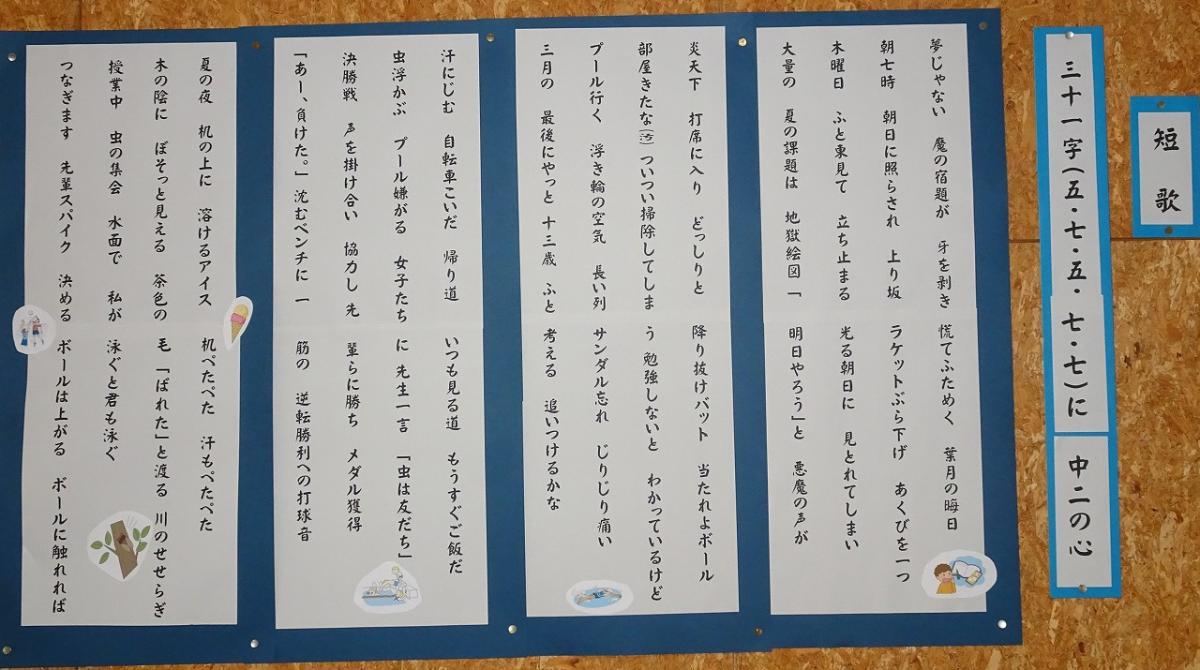 短歌
三十一字(五・七・五・七・七)に 中二の心
夢じゃない 魔の宿題が 牙を剥き 慌てふためく 葉月の晦日
朝七時 朝日に照らされ 上り坂 ラケットぶら下げ あくびを一つ
木曜日 ふと東見て 立ち止まる 光る朝日に 見とれてしまい
大量の 夏の課題は 地獄絵図 「明日やろう」と 悪魔の声が
炎天下 打席に入り どっしりと 降り抜けバット 当たれよボール
部屋きたな(汚) ついつい掃除してしまう 勉強しないと わかっているけど
プール行く 浮き輪の空気 長い列 サンダル忘れ じりじり痛い
三月の 最後にやっと 十三歳 ふと考える 追いつけるかな
汗にじむ 自転車こいだ 帰り道 いつも見る道 もうすぐご飯だ
虫浮かぶ プール嫌がる 女子たちに 先生一言 「虫は友だち」
決勝戦 声を掛け合い 協力し 先輩らに勝ち メダル獲得
「あー、負けた。」沈むベンチに 一筋の 逆転勝利への打球音
夏の夜 机の上に 溶けるアイス 机ぺたぺた 汗もぺたぺた
木の陰に ぼそっと見える 茶色の毛 「ばれた」と渡る 川のせせらぎ
授業中 虫の集会 水面で 私が泳ぐと君も泳ぐ
つなぎます 先輩スパイク 決める ボールは上がる ボールに触れれば